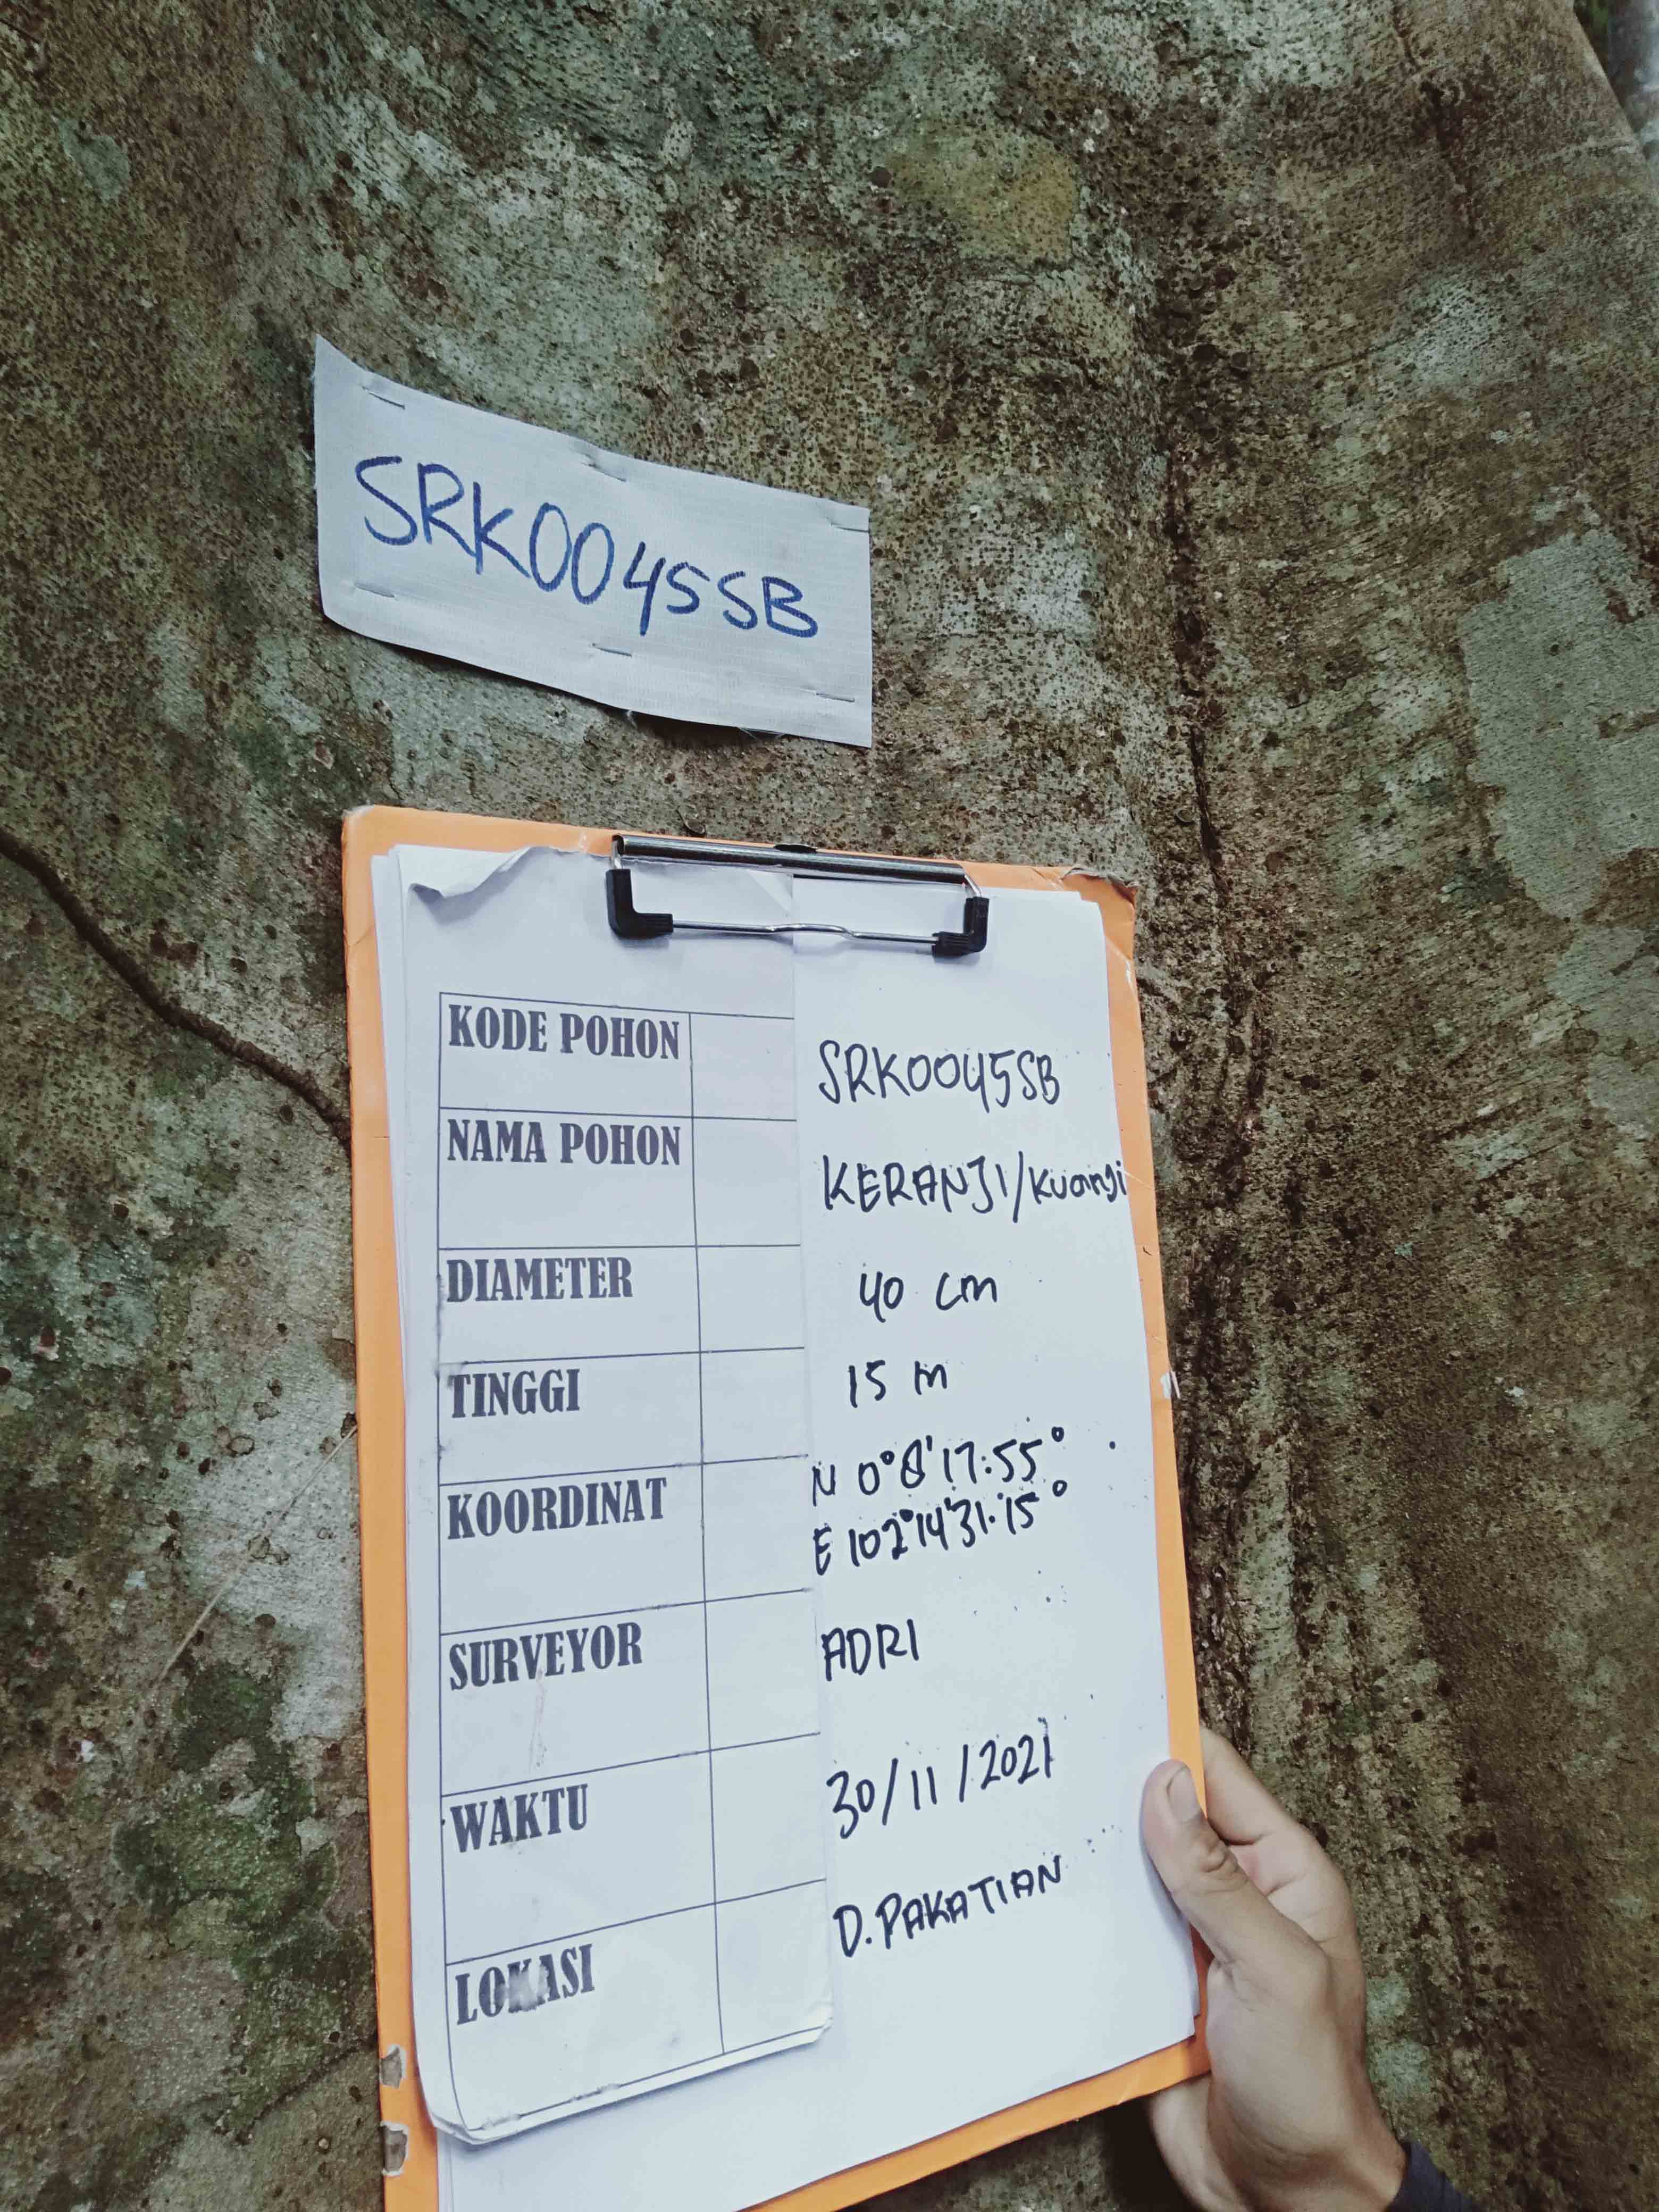 SRK0045SB
KODE POHON SRK0045SB
NAMA POHON KERANJI/Kuanji
DIAMETER 40 cm
TINGGI 15 m
KOORDINAT N 0°8'17.55°
E 102°14'31.15°
SURVEYOR ADRI
WAKTU 30/11/2021
LOKASI D.PAKATIAN